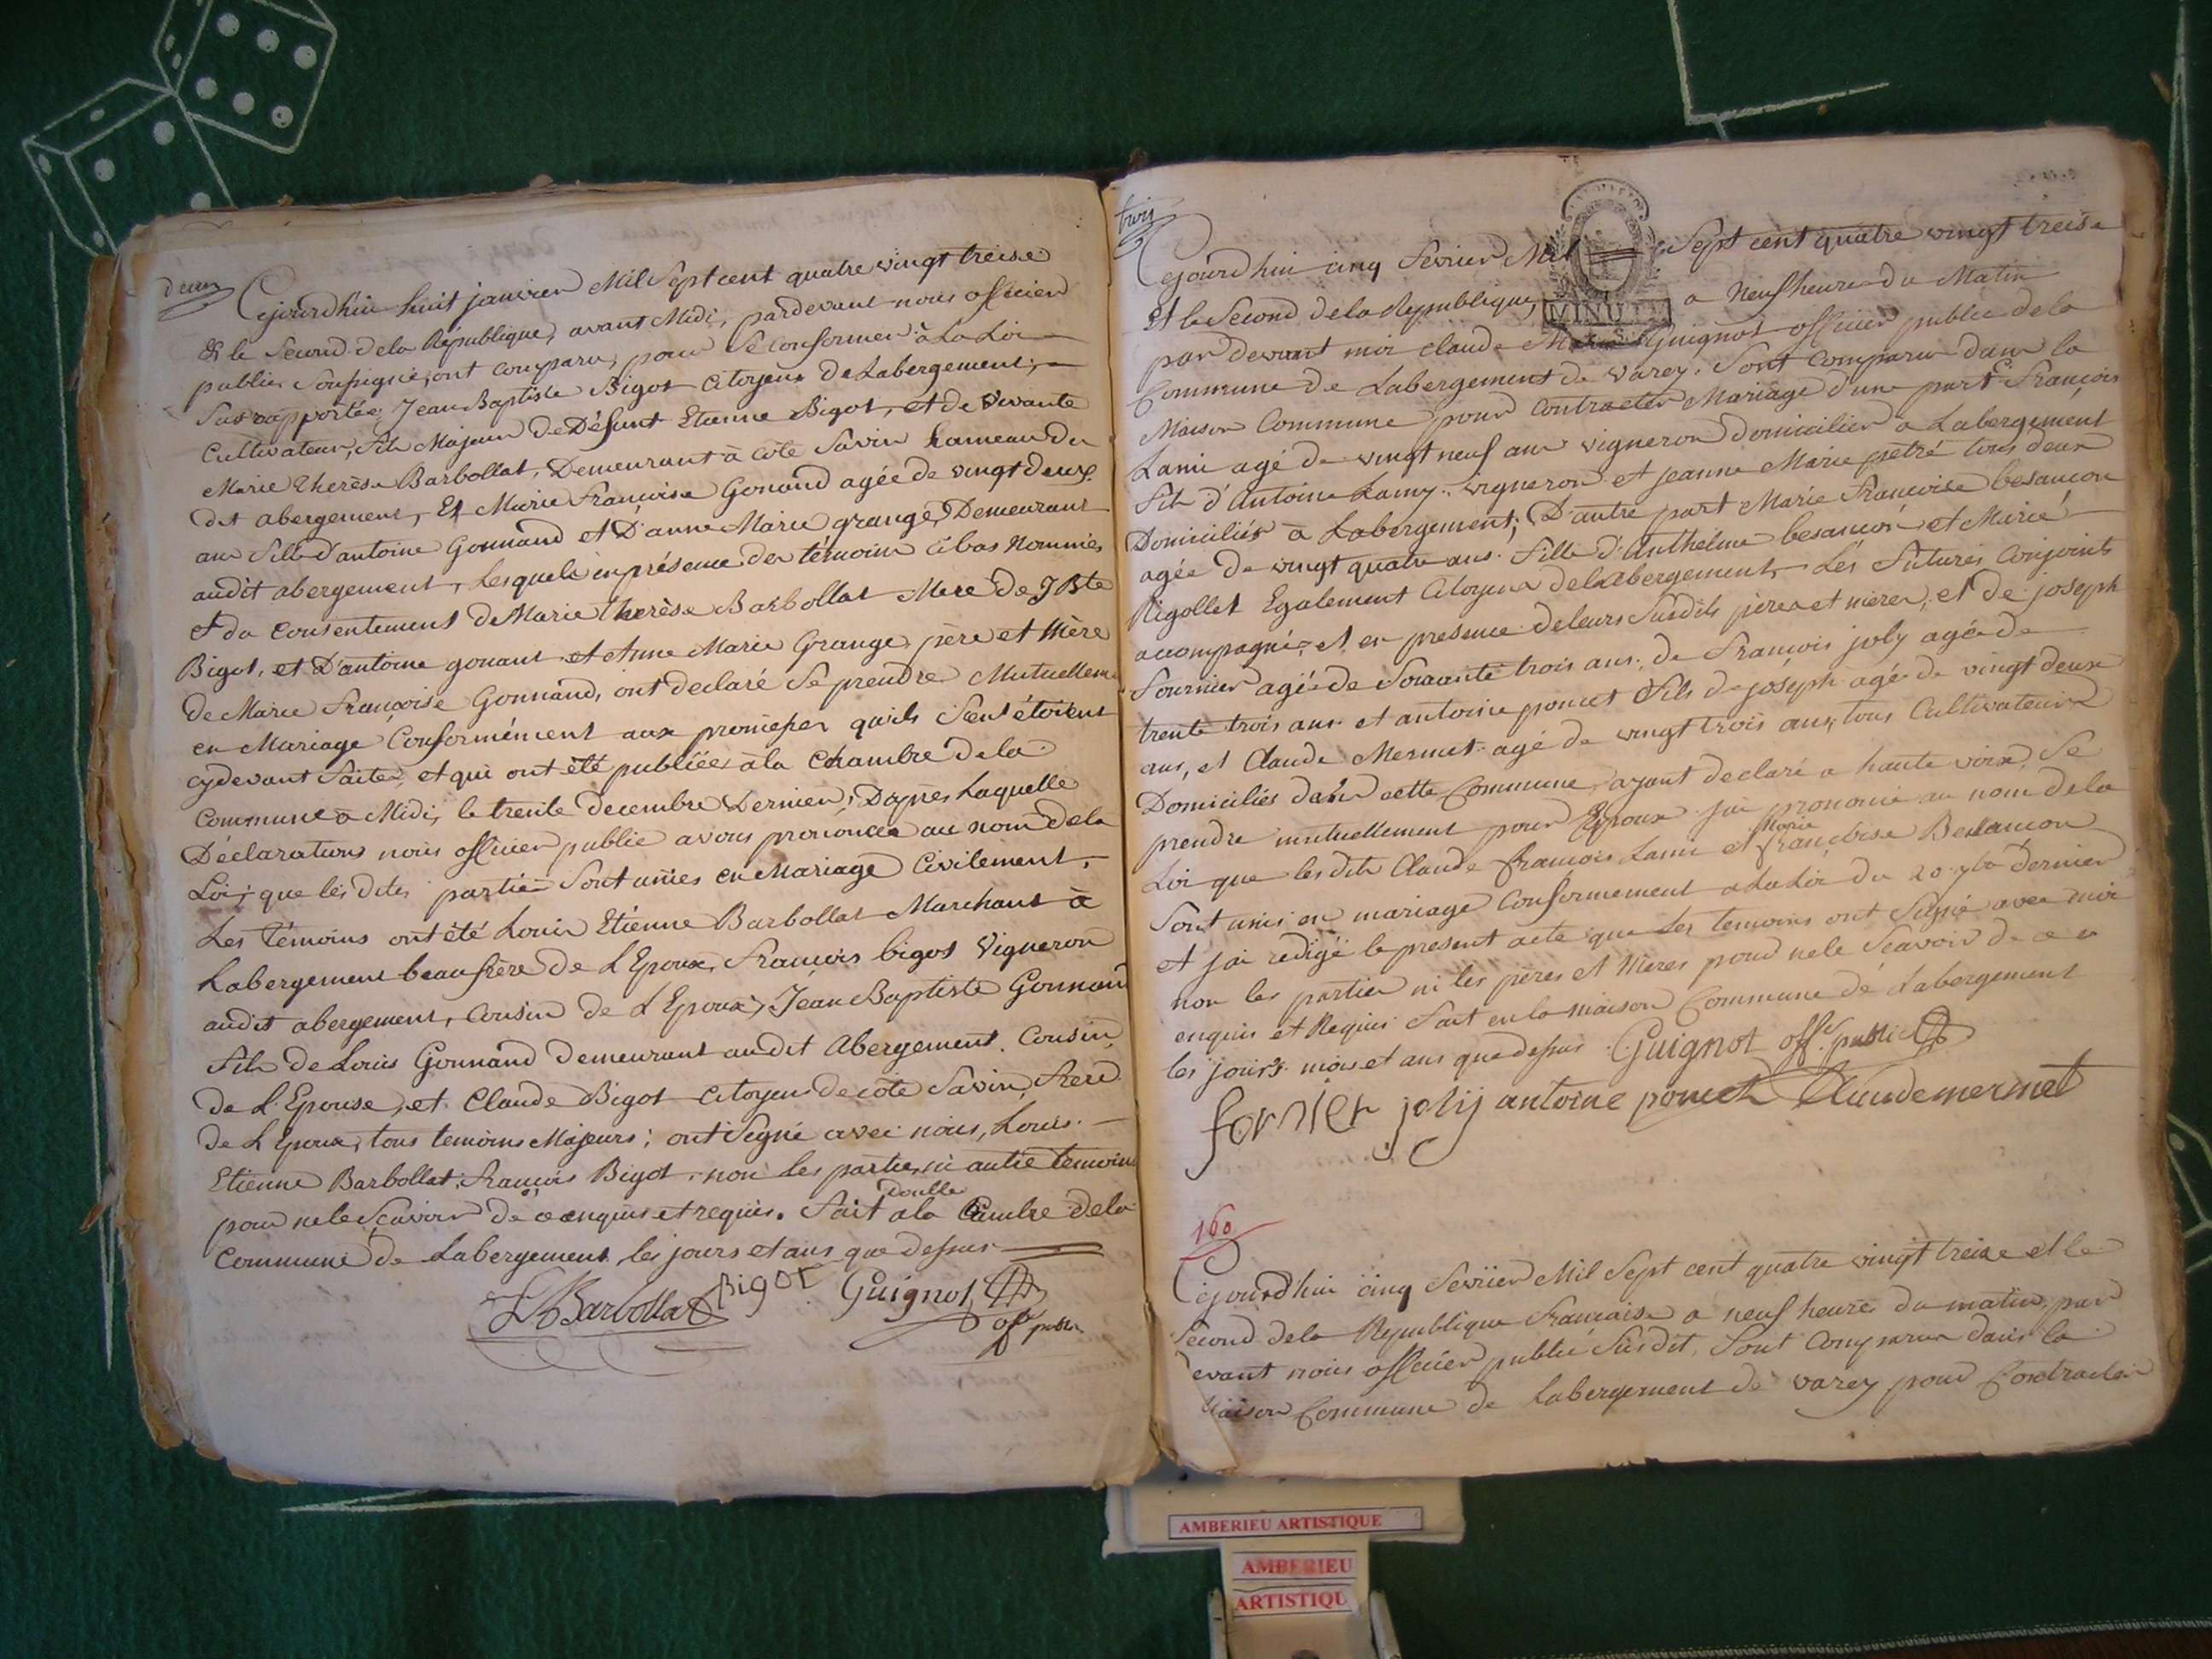 deux
Cejourdhui huit janvier Mil Sept cent quatre vingt treise
Et le Second dela République, avant Midi, pardevant nous officier
public Soussigné, ont comparu, pour Se Conformer à La Loi
Jean Baptiste Bigot Citoyens De Labergement,
Cultivateur, fils Majeur De Défunt Etienne Bigot, et de Vivante
Marie Therèse Barbollat, Demeurant à côte Savin hameau du
dit abergement, Et Marie Françoise Gonand agée de vingt deux
ans fille d'antoine Gonnand et D'anne Marie grange, Demeurant
audit abergement, Lesquels en présence des témoins ci bas Nommés
et du Consentement De Marie therèse Barbollat Mere De J Bte
Bigot, et D'antoine gonant et Anne Marie Grange père et Mère
De Marie Françoise Gonnand, ont declaré Se prendre Mutuellem
en Mariage Conformément aux promesses quils S'ent étoient
cydevant faites, et qui ont été publiées àla Chambre dela
Commune à Midi, le trente decembre Dernier; Dapres Laquelle
Déclarations nous officier public avons prononcée au nom Dela
Loi; que les dites parties Sont unies en Mariage Civilement,
Les témoins ont été Louis Etienne Barbollat Marchant à
Labergement beaufrère De L'Epoux, François bigot Vigneron
audit abergement, Cousin de L'Epoux, Jean Baptiste Gonnand
fils De Louis Gonnand demeurant audit Abergement. Cousin
De L'Epouse, et Claude Bigot Citoyen De côte Savin, frere
De L'Epoux, tous temoins Majeurs; ont Signé avec nous, Louis
Etienne Barbollat, François Bigot, non Les parties ni autre temoins
pour nele Scavoir De ce enquis et requis. Fait ala Chambre dela
double
Commune de Labergement les jours et ans que dessus
LE Barbollat Bigot Guignot
off public
trois
Cejourdhui cinq fevrier Mil Sept cent quatre vingt treise
Et le Second dela Republique, a Neuf heure du Matin
MINUTE
par devant moi claude Marie Guignot officier public dela
Commune de Labergement de Varey. Sont Comparu dans la
Maison Commune pour Contracter Mariage d'une part Cl François
Lami agé de vingt neuf ans vigneron domicilier a Labergement
fils d'Antoine Lamy vigneron et jeanne Marie petré tous deux
Domiciliés à Labergement; D'autre part Marie Francoise besancon
agée De vingt quatre ans. fille d'Anthelme besancon et Marie
Rigollet Egalement Citoyens delabergement, Lés futures Conjoints
accompagné, et en presence deleurs Susdits pères et mères, et de joseph
fournier agée de Soixante trois ans, de François joly agée de
trente trois ans et antoine poncet fils de joseph agé de vingt deux
ans, et Claude Mermet agé de vingt trois ans, tous Cultivateurs
Domiciliés dans cette Commune, ayant declaré a haute voix Se
prendre mutuellement pour Epoux jai prononcé au nom dela
Loi que lesdits Claude françois Lami et françoise Besancon
Marie
Sont unis en mariage Conformement alaloi du 20 7bre dernier
et jai redigé le present acte que Les temoins ont Signé avec moi
non les parties ni les pères et Mères pour nele Scavoir de ce
enquis et Requis fait en la maison Commune de Labergement
les jours mois et ans que dessus Guignot off. public
fornier joly antoine poncet Claude mermet
160
Cejourd'hui cinq fevrier Mil Sept cent quatre vingt treize et le
Second dela Republique francaise a neuf heures du matin, par
devant nous officier public Susdit, Sont Comparus dans la
Maison Commune de Labergement de varey pour Contracter
AMBERIEU ARTISTIQUE
AMBERIEU
ARTISTIQU